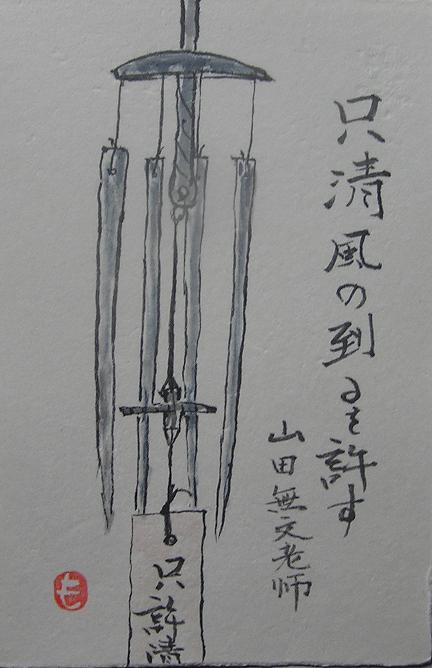 只清風の到るを許す
山田無文老師
只許清